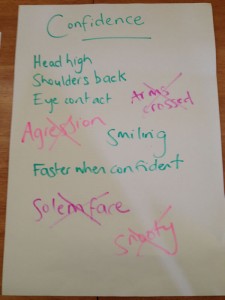 Confidence
Head high
Shoulders back
Eye contact
Arms
crossed
Agression
Smiling
Faster when confident
Solem face
Shonty